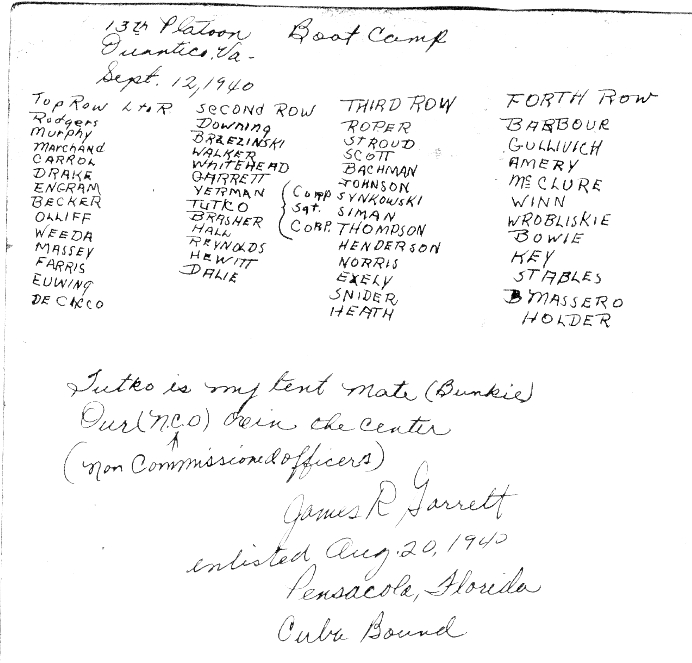 13th Platoon Boot Camp
Quantico, Va-
Sept. 12, 1940
Top Row L to R.
Rodgers
Murphy
Marchand
CARROL
DRAKE
ENGRAM
BECKER
OLLIFF
WEEDA
MASSEY
FARRIS
EUWING
DE CICCO
SECOND ROW
Downing
BRZEZINSKI
WALKER
WHITEHEAD
GARRETT
YERMAN
TUTKO
BRASHER
HALL
REYNOLDS
HEWITT
DALIE
THIRD ROW
ROPER
STROUD
SCOTT
BACHMAN
JOHNSON
(Corp SYNKOWSKI
Sgt. SIMAN
CORP. THOMPSON
HENDERSON
NORRIS
EXELY
SNIDER
HEATH
FORTH ROW
BARBOUR
GULLIVICH
AMERY
McCLURE
WINN
WROBLISKIE
BOWIE
KEY
STABLES
MASSERO
HOLDER
Tutko is my tent mate (Bunkie)
Our (N.C.O) in the center
(Non Commissioned officers)
James R Garrett
enlisted Aug. 20, 1940
Pensacola, Florida
Cuba Bound